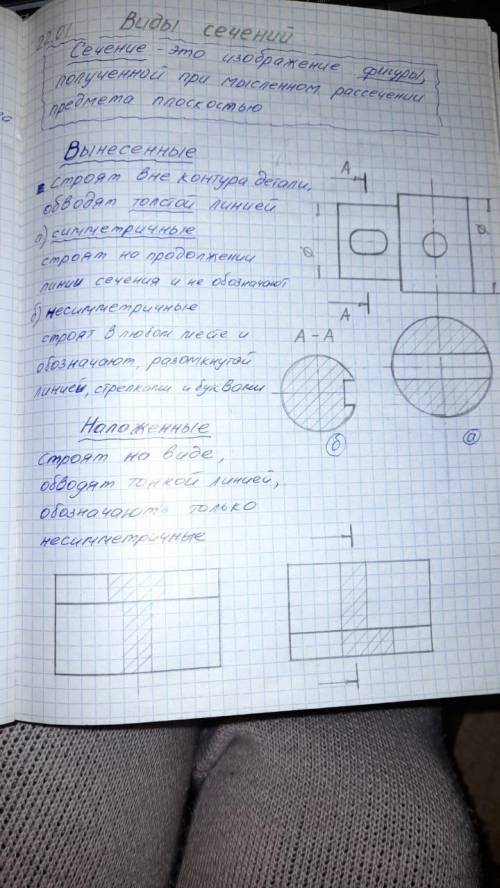 22.01
Виды сечений
Сечение - это изображение фигуры,
полученной при мысленном рассечении
предмета плоскостью
Вынесенные
строят вне контура детали,
обводят толстой линией
а) симметричные
строят на продолжении
линии сечения и не обозначают
б) несимметричные
строят в любом месте и
обозначают разомкнутой
линией, стрелками и буквами
А
А
А - А
б
а
Наложенные
строят на виде,
обводят тонкой линией,
обозначают только
несимметричные